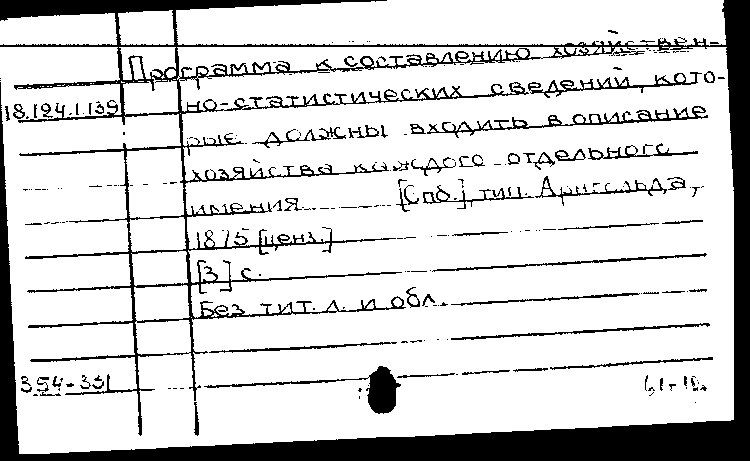 Программа к составлению хозяйствен-
18.124.1.139 но-статистических сведений, кото-
рые должны входить в описание
хозяйства каждого отдельного
имения [Спб.], тип. Арнгольда,
1875 [ценз.]
[3] с.
Без тит. л. и обл.
354-331